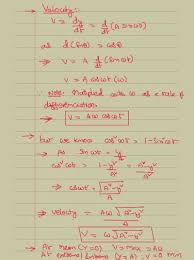 → Velocity:-
V = dy/dt = d/dt (A sin ωt)
as d/dt (sin θ) = cos θ
⇒ V = A d/dt (sin ωt)
V = A cos ωt (ω)
Note: Multiplied with ω as a rule of
differentiation
⇒ V = Aω cos ωt
→ but we know cos² ωt = 1 - sin² ωt
⇒ As sin ωt = y/A
cos² ωt = 1 - y²/A² = A² - y²/A²
cos ωt = √A² - y²/A²
⇒ Velocity = Aω √A² - y²/A²
V = ω √A² - y²
→ At mean (y=0) V max = Aω
→ At extreme (y = A) V = 0